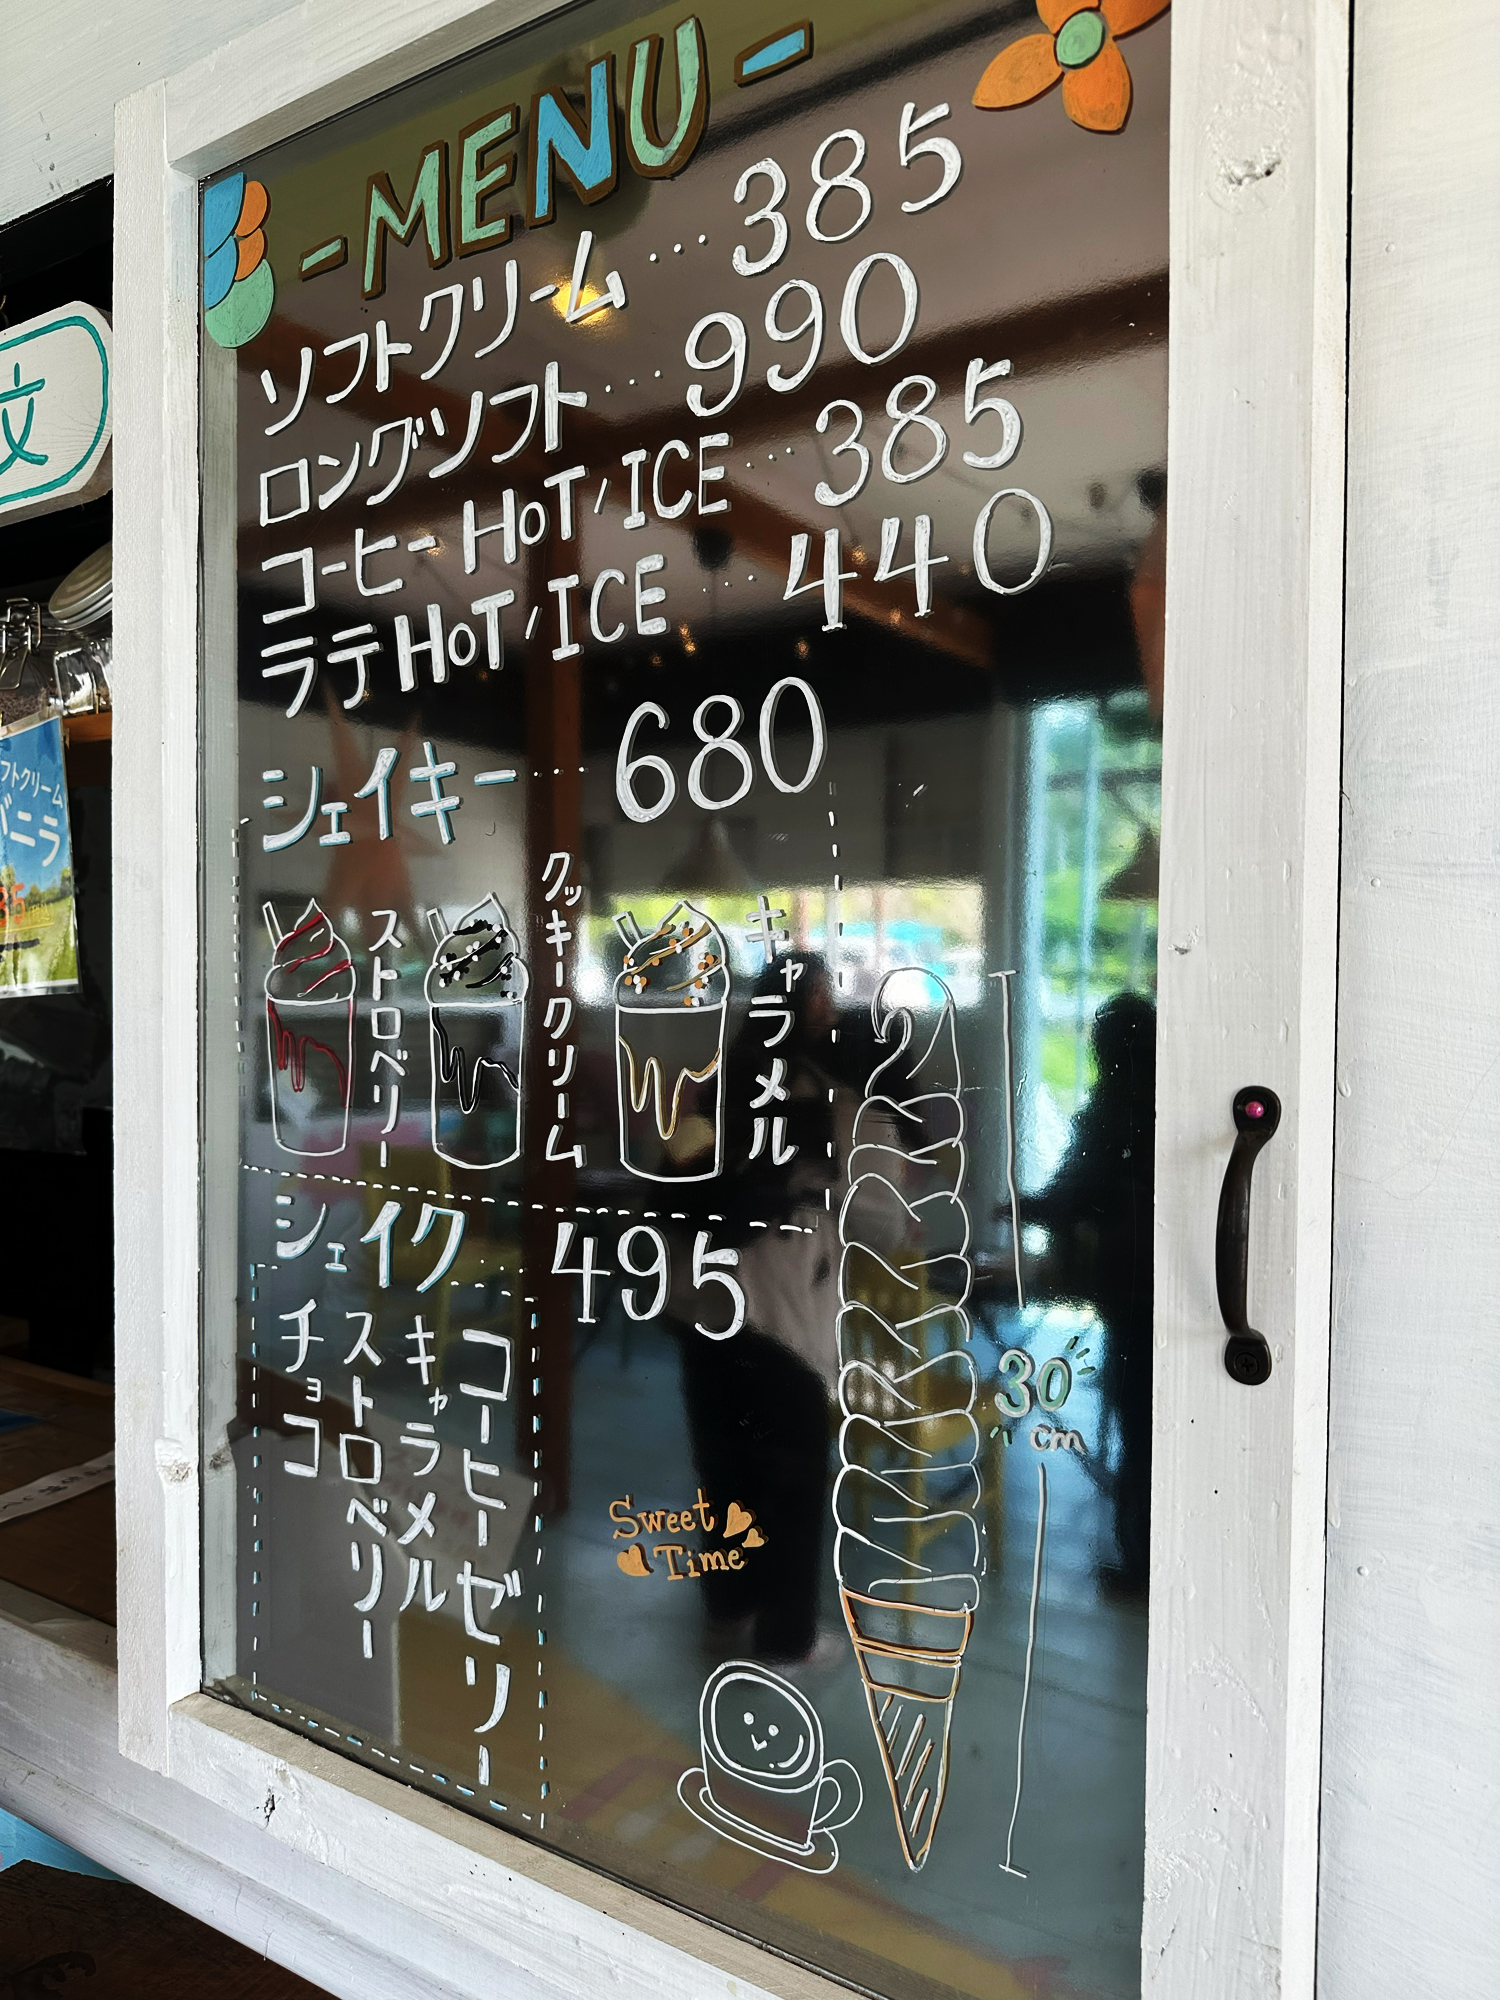 -MENU-
ソフトクリーム…385
ロングソフト…990
コーヒー HOT/ICE…385
ラテ HOT/ICE…440
シェイキー…680
ストロベリー
クッキークリーム
キャラメル
シェイク…495
チョコ
ストロベリー
キャラメル
コーヒーゼリー
30
cm
Sweet
Time
文
フトクリーム
バニラ